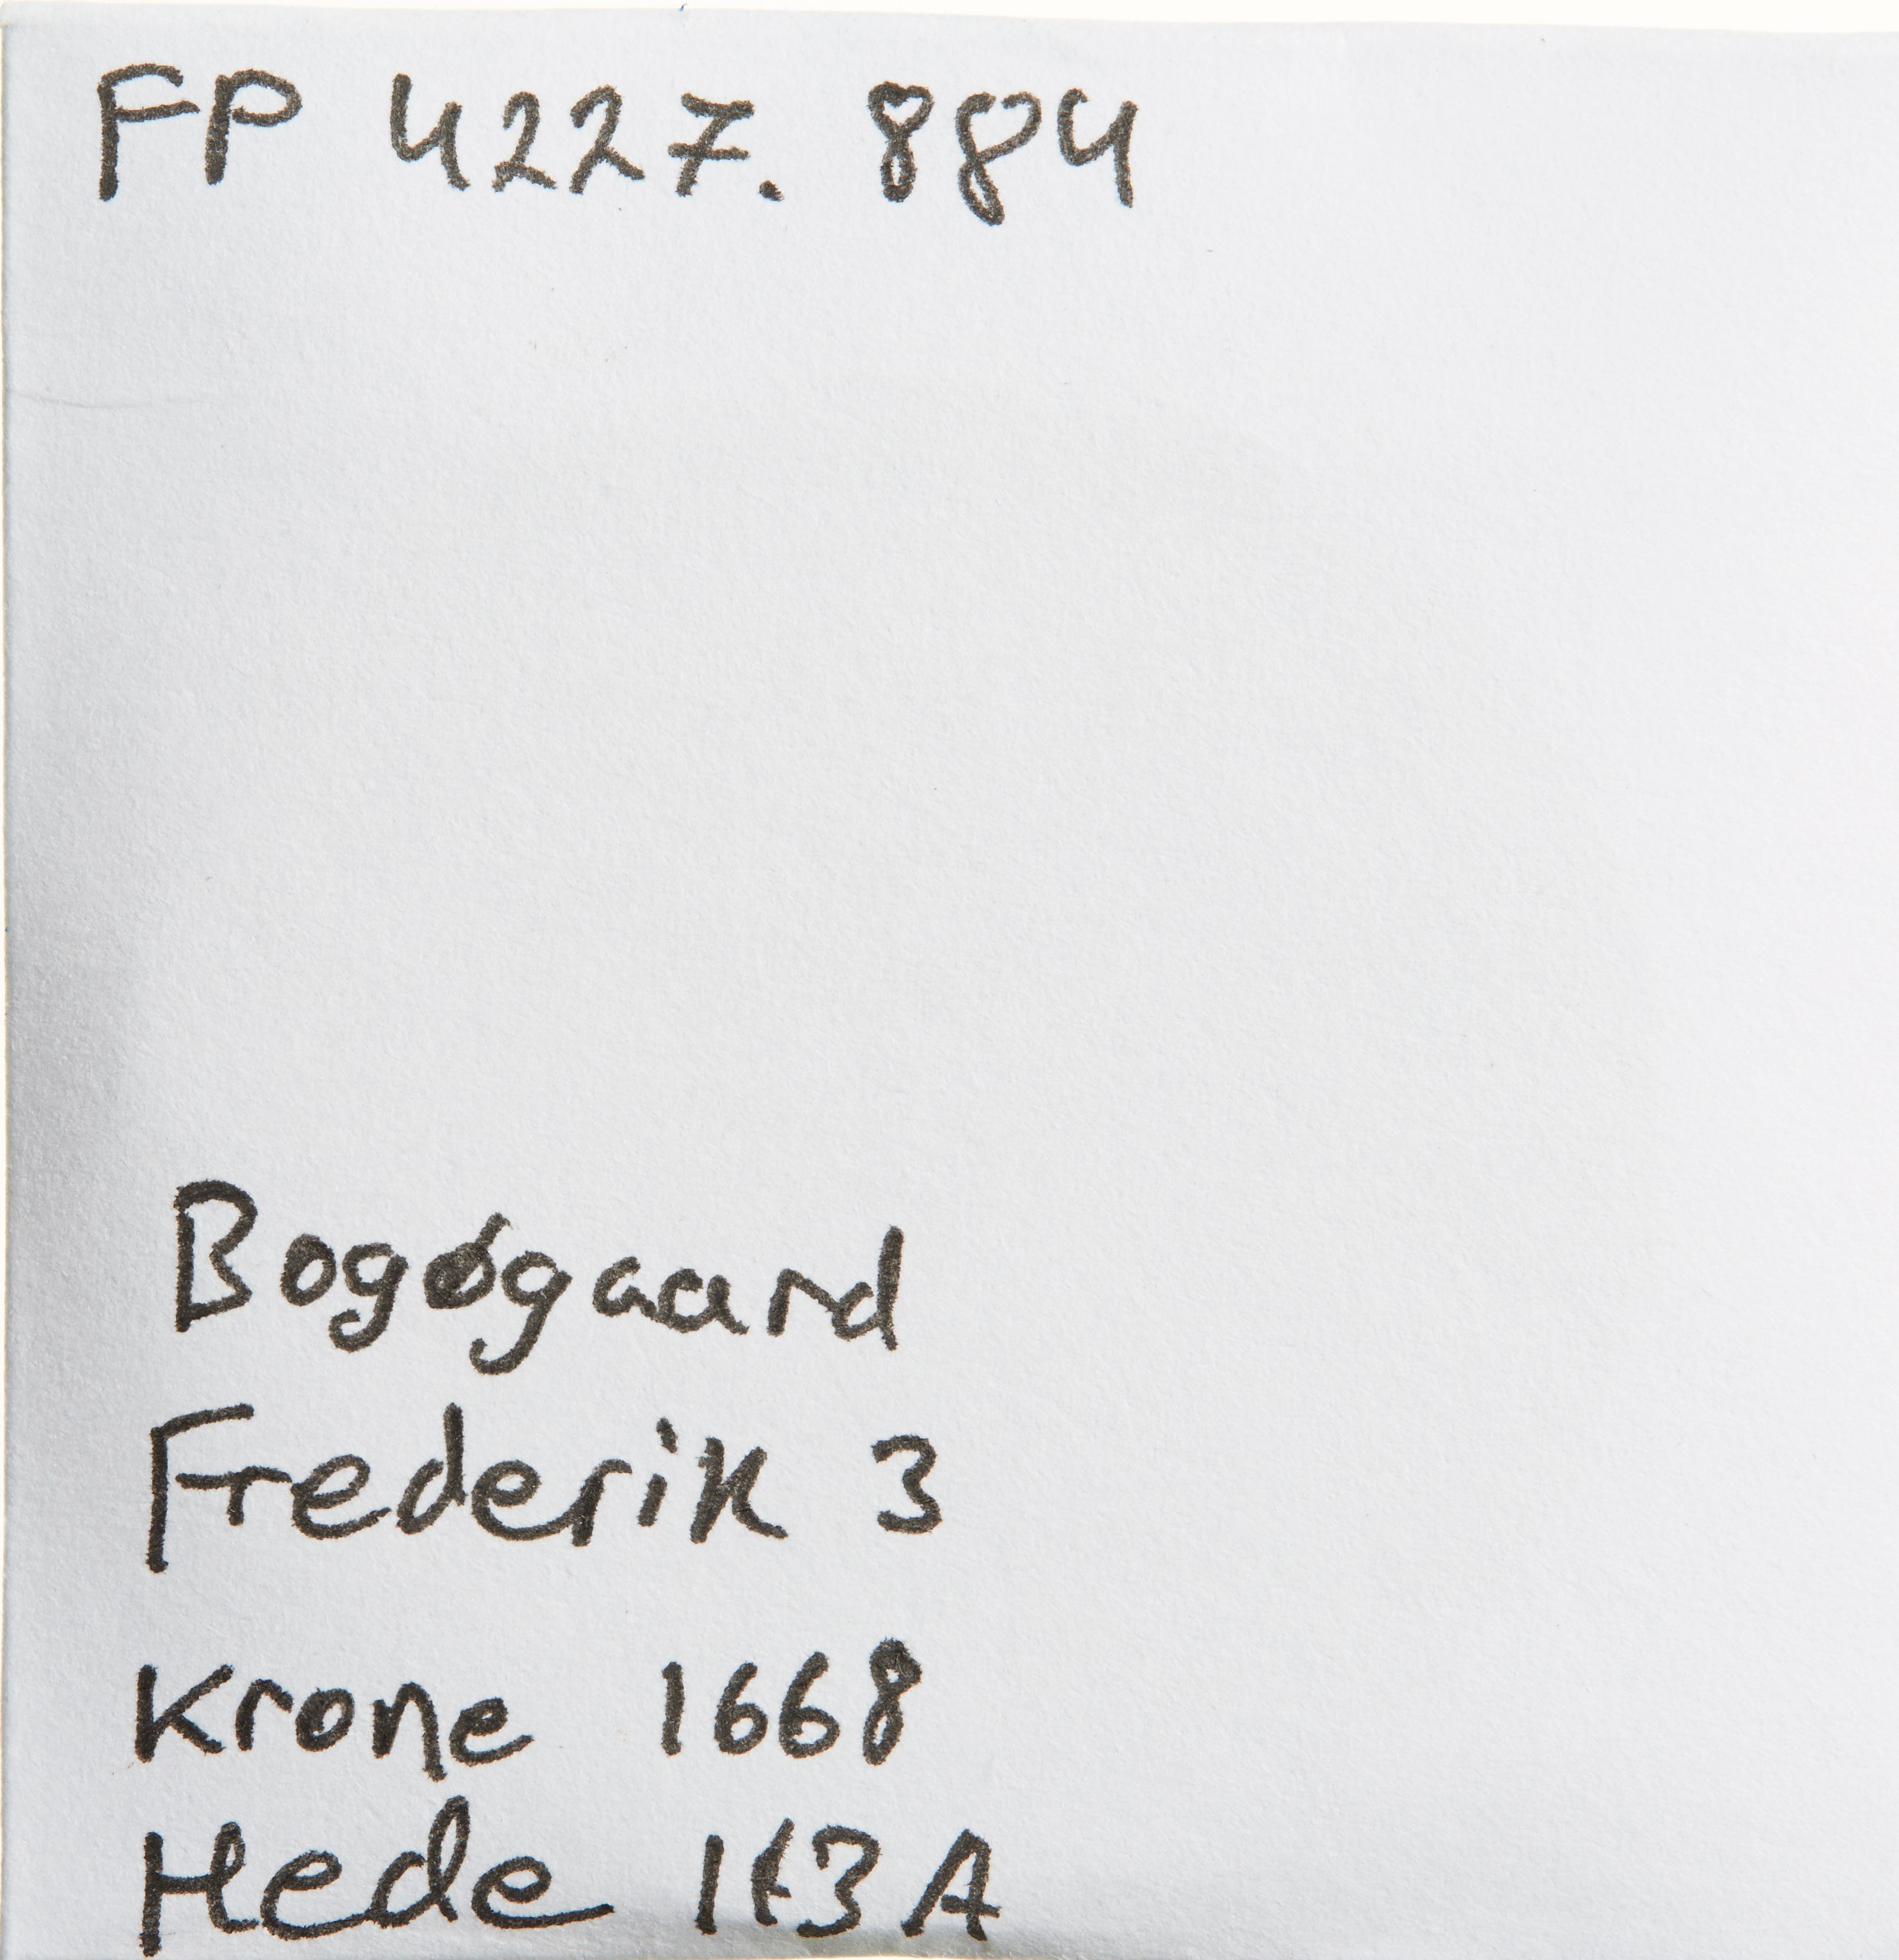 FP 4227. 884
Bogøgaard
Frederik 3
Krone 1668
Hede